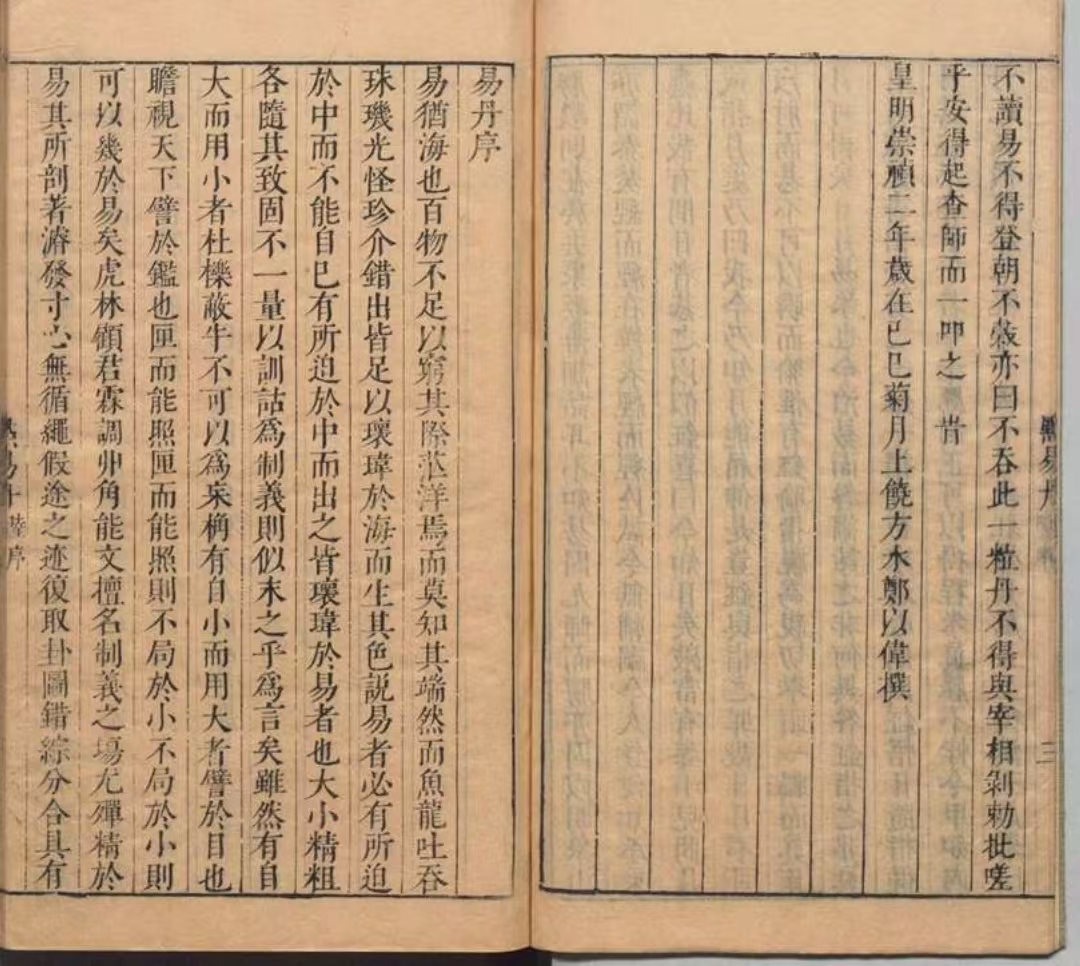 點易丹
三
不讀易不得登朝不穀亦曰不吞此一粒丹不得與宰相剝勅批嗟
乎安得起查師而一叩之 昔
皇明崇禎二年歲在己巳菊月上饒方水鄭以偉撰
易丹序
易猶海也百物不足以窮其際茫洋焉而莫知其端然而魚龍吐吞
珠璣光怪珍介錯出皆足以瓌瑋於海而生其色説易者必有所迫
於中而不能自已有所迫於中而出之皆瓌瑋於易者也大小精粗
各隨其致固不一量以訓詁爲制義則似末之乎爲言矣雖然有自
大而用小者杜櫟蔽牛不可以爲宋桷有自小而用大者譬於目也
瞻視天下譬於鑑也匣而能照匣而能照則不局於小不局於小則
可以幾於易矣虎林顧君霖調丱角能文擅名制義之塲尤殫精於
易其所剖著濬發寸心無循繩假途之迹復取卦圖錯綜分合具有
序